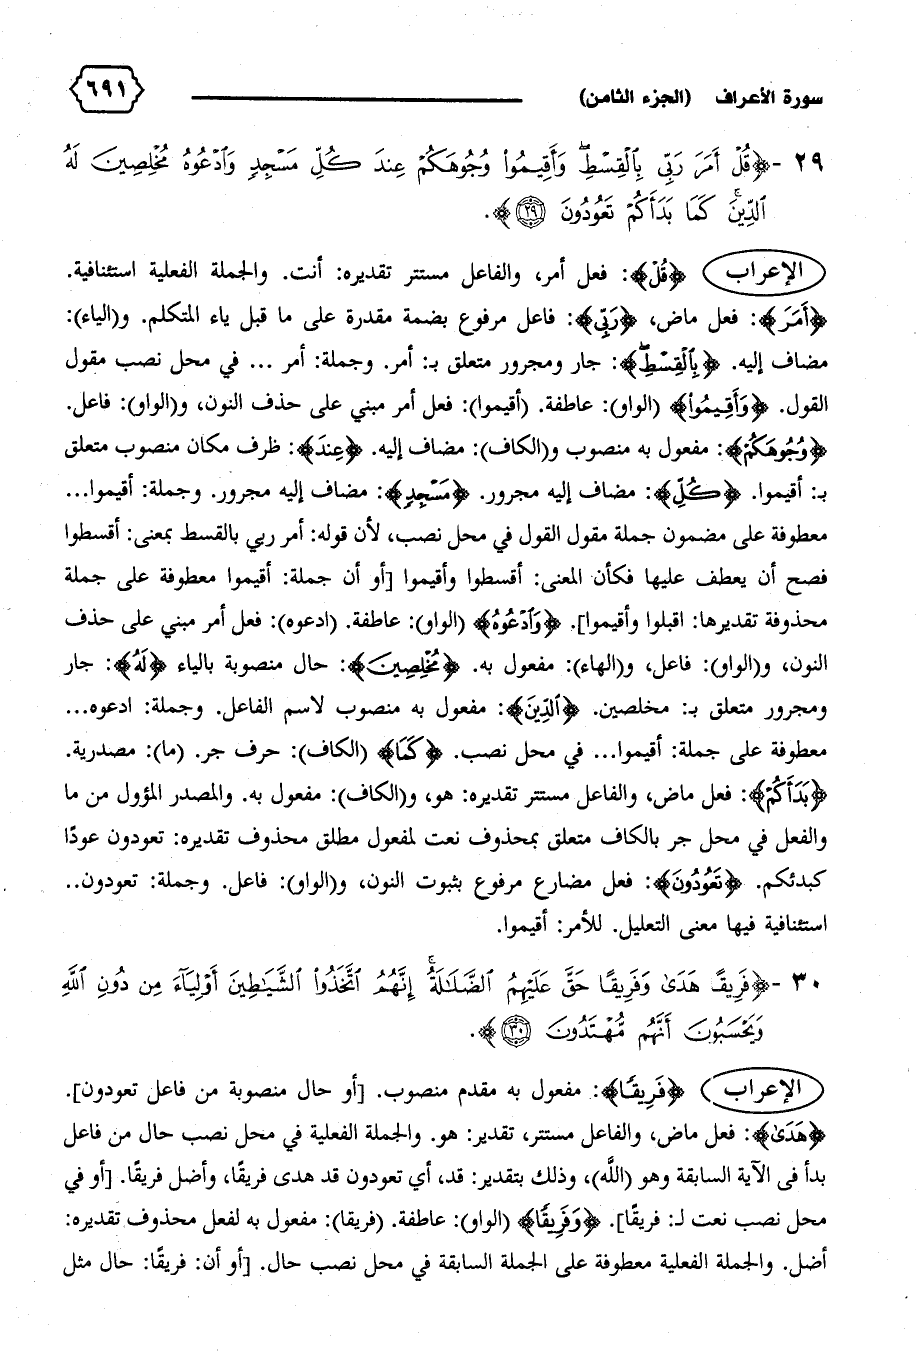 سورة الأعراف (الجزء الثامن) ٦٩١
٢٩ -﴿قُلۡ أَمَرَ رَبِّي بِٱلۡقِسۡطِۖ وَأَقِيمُواْ وُجُوهَكُمۡ عِندَ كُلِّ مَسۡجِدٖ وَٱدۡعُوهُ مُخۡلِصِينَ لَهُ
ٱلدِّينَۚ كَمَا بَدَأَكُمۡ تَعُودُونَ ٢٩﴾.
الإعراب ﴿قُلۡ﴾: فعل أمر، والفاعل مستتر تقديره: أنت. والجملة الفعلية استئنافية.
﴿أَمَرَ﴾: فعل ماض، ﴿رَبِّي﴾: فاعل مرفوع بضمة مقدرة على ما قبل ياء المتكلم. و(الياء):
مضاف إليه. ﴿بِٱلۡقِسۡطِۖ﴾: جار ومجرور متعلق بـ: أمر. وجملة: أمر ... في محل نصب مقول
القول. ﴿وَأَقِيمُواْ﴾ (الواو): عاطفة. (أقيموا): فعل أمر مبني على حذف النون، و(الواو): فاعل.
﴿وُجُوهَكُمۡ﴾: مفعول به منصوب و(الكاف): مضاف إليه. ﴿عِندَ﴾: ظرف مكان منصوب متعلق
بـ: أقيموا. ﴿كُلِّ﴾: مضاف إليه مجرور. ﴿مَسۡجِدٖ﴾: مضاف إليه مجرور. وجملة: أقيموا...
معطوفة على مضمون جملة مقول القول في محل نصب، لأن قوله: أمر ربي بالقسط بمعنى: أقسطوا
فصح أن يعطف عليها فكأن المعنى: أقسطوا وأقيموا [أو أن جملة: أقيموا معطوفة على جملة
محذوفة تقديرها: اقبلوا وأقيموا]. ﴿وَٱدۡعُوهُ﴾ (الواو): عاطفة. (ادعوه): فعل أمر مبني على حذف
النون، و(الواو): فاعل، و(الهاء): مفعول به. ﴿مُخۡلِصِينَ﴾: حال منصوبة بالياء ﴿لَهُ﴾: جار
ومجرور متعلق بـ: مخلصين. ﴿ٱلدِّينَ﴾: مفعول به منصوب لاسم الفاعل. وجملة: ادعوه...
معطوفة على جملة: أقيموا... في محل نصب. ﴿كَمَا﴾ (الكاف): حرف جر. (ما): مصدرية.
﴿بَدَأَكُمۡ﴾: فعل ماض، والفاعل مستتر تقديره: هو، و(الكاف): مفعول به. والمصدر المؤول من ما
والفعل في محل جر بالكاف متعلق بمحذوف نعت لمفعول مطلق محذوف تقديره: تعودون عودًا
كبدئكم. ﴿تَعُودُونَ﴾: فعل مضارع مرفوع بثبوت النون، و(الواو): فاعل. وجملة: تعودون..
استئنافية فيها معنى التعليل. للأمر: أقيموا.
٣٠ -﴿فَرِيقًا هَدَىٰ وَفَرِيقًا حَقَّ عَلَيۡهِمُ ٱلضَّلَٰلَةُۚ إِنَّهُمُ ٱتَّخَذُواْ ٱلشَّيَٰطِينَ أَوۡلِيَآءَ مِن دُونِ ٱللَّهِ
وَيَحۡسَبُونَ أَنَّهُم مُّهۡتَدُونَ ٣٠﴾.
الإعراب ﴿فَرِيقًا﴾: مفعول به مقدم منصوب. [أو حال منصوبة من فاعل تعودون].
﴿هَدَىٰ﴾: فعل ماض، والفاعل مستتر، تقدير: هو. والجملة الفعلية في محل نصب حال من فاعل
بدأ في الآية السابقة وهو (اللَّه)، وذلك بتقدير: قد، أي تعودون قد هدى فريقًا، وأضل فريقًا. [أو في
محل نصب نعت لـ: فريقًا]. ﴿وَفَرِيقًا﴾ (الواو): عاطفة. (فريقا): مفعول به لفعل محذوف تقديره:
أضل. والجملة الفعلية معطوفة على الجملة السابقة في محل نصب حال. [أو أن: فريقًا: حال مثل